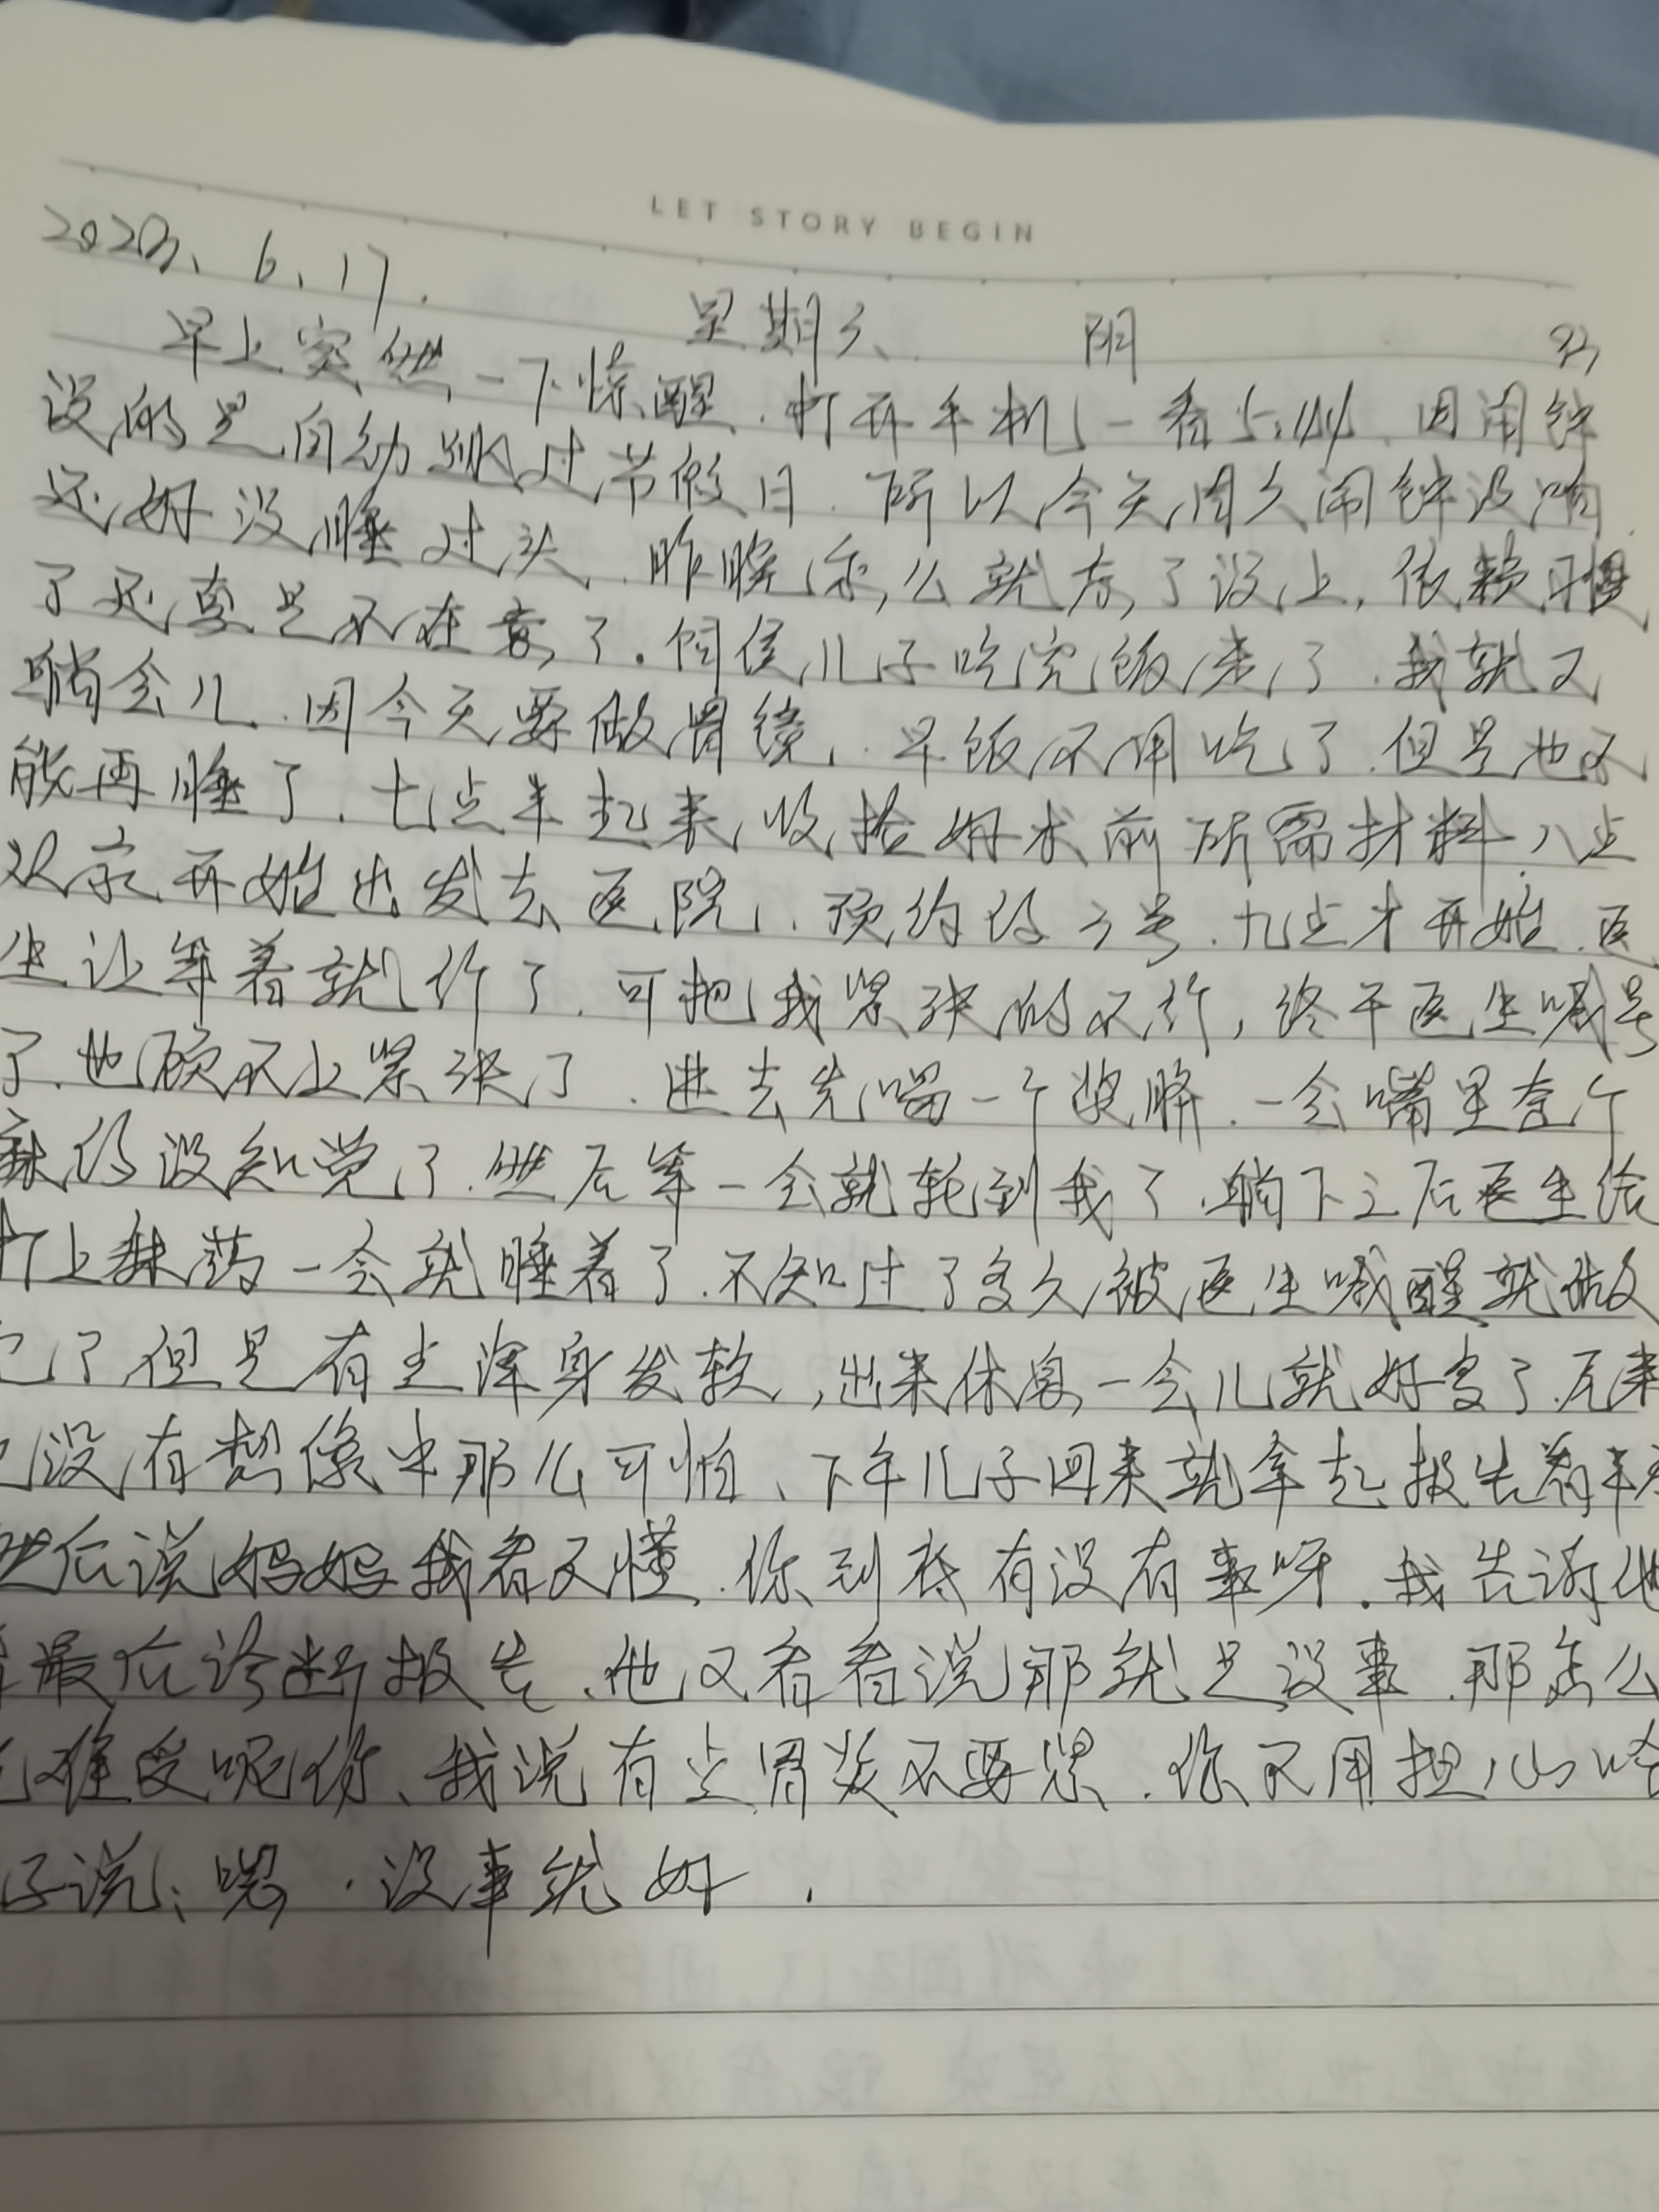 LET STORY BEGIN
2023、6、17.
星期六 阴
早上突然一下惊醒、打开手机一看5:44、因闹钟
设的是自动跳过节假日、所以今天周六闹钟没响、
还好没睡过头、昨晚怎么就忘了设上,依赖惯
了还真是不在意了。伺候儿子吃完饭走了、我就又
躺会儿、因今天要做胃镜、早饭不用吃了、但是也不
能再睡了、七点半起来收拾好术前所需材料、八点
从家开始出发去医院、预约的3号、九点才开始、医
生让等着就行了、可把我紧张的不行,终于医生喊号
了、也顾不上紧张了、进去先喝一个、一会嘴里整个
麻的没知觉了、然后等一会就轮到我了、躺下之后医生给
打上麻药一会就睡着了、不知过了多久被医生喊醒就做
完了但是有点浑身发软,出来休息一会儿就好多了、原来
也没有想像中那么可怕、下午儿子回来就拿起报告看半
然后说妈妈我看不懂、你到底有没有事呀。我告诉他
最后诊断报告、他又看看说那就是没事、那怎么
难受呢你、我说有点胃炎不要紧、你不用担心哈
子说:嗯、没事就好、